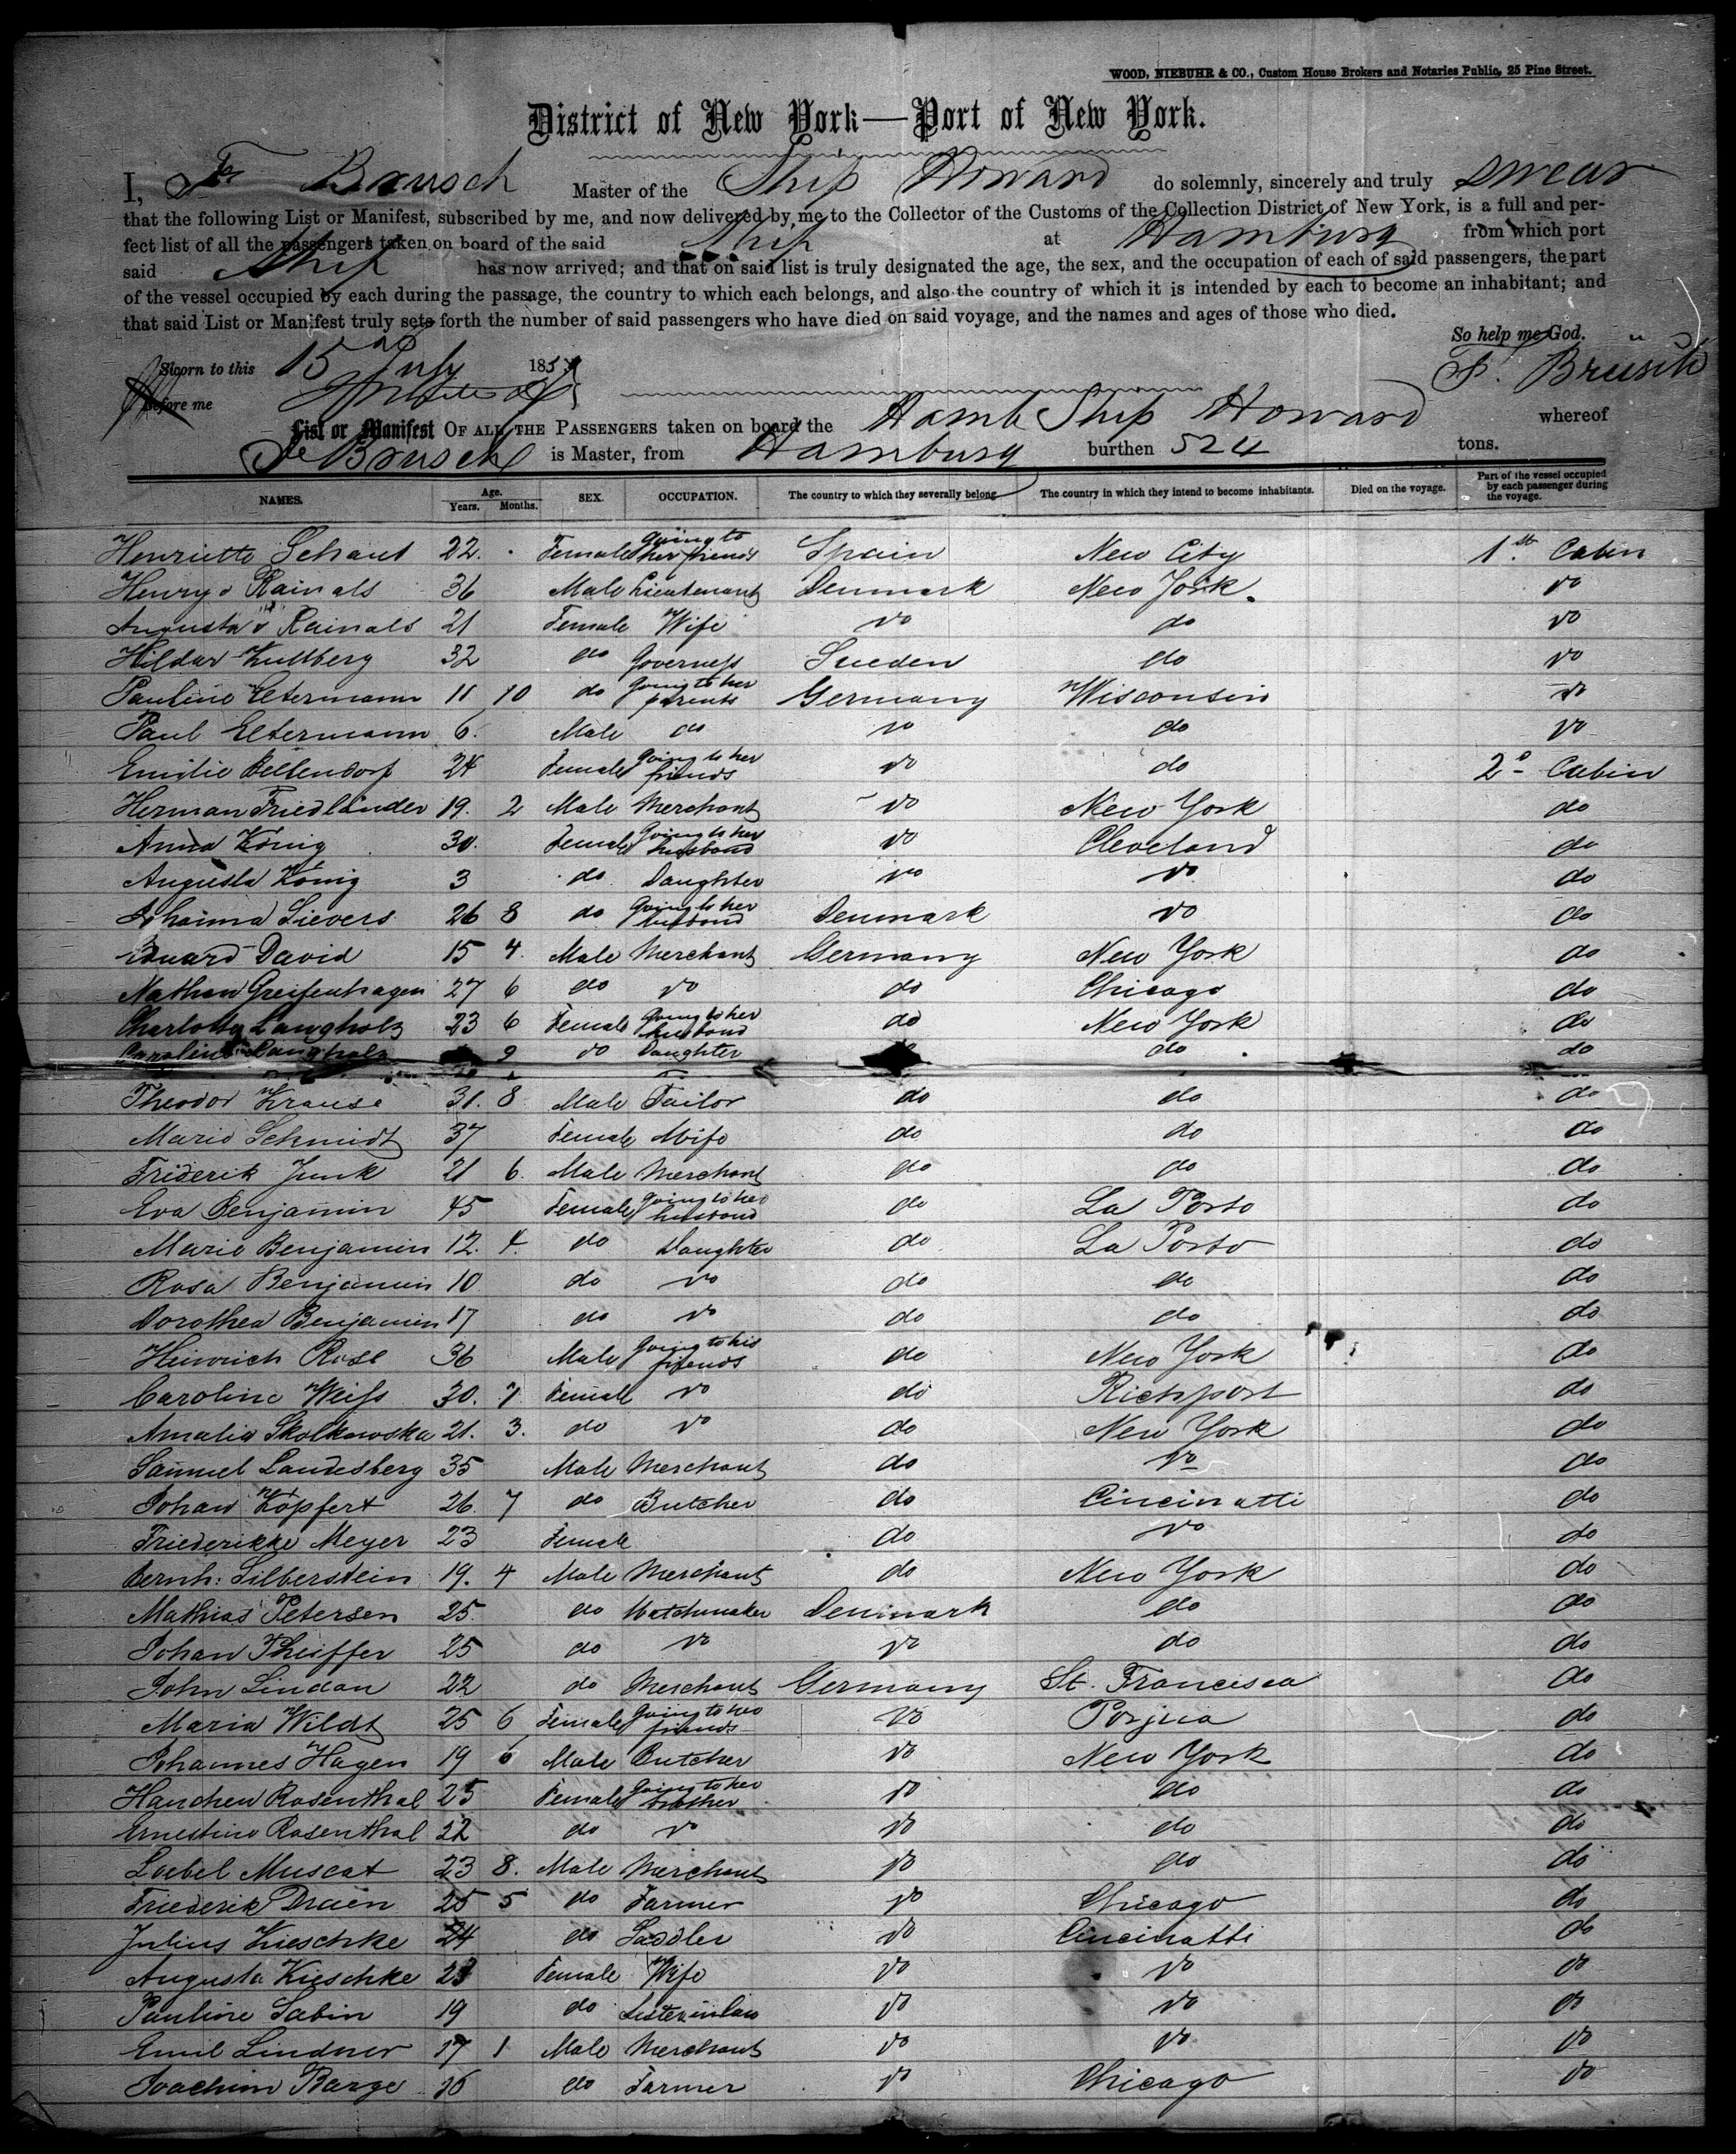 WOOD, NIEBUHR & CO., Custom House Brokers and Notaries Public, 25 Pine Street.
District of New York—Port of New York.
I, Brusch Master of the Ship Howard do solemnly, sincerely and truly swear
that the following List or Manifest, subscribed by me, and now delivered by me to the Collector of the Customs of the Collection District of New York, is a full and per-
fect list of all the passengers taken on board of the said Ship at Hamburg from which port
said Ship has now arrived; and that on said list is truly designated the age, the sex, and the occupation of each of said passengers, the part
of the vessel occupied by each during the passage, the country to which each belongs, and also the country of which it is intended by each to become an inhabitant; and
that said List or Manifest truly sets forth the number of said passengers who have died on said voyage, and the names and ages of those who died.
So help me God.
Sworn to this 15 July 185
F. Brüsch
Before me
List or Manifest OF ALL THE PASSENGERS taken on board the Hamb Ship Howard whereof
Brusch is Master, from Hamburg burthen 524 tons.
NAMES. Age. Years. Months. SEX. OCCUPATION. The country to which they severally belong. The country in which they intend to become inhabitants. Died on the voyage. Part of the vessel occupied by each passenger during the voyage.
Henriette Schaut 22. Female going to her friends Spain New City 1st. Cabin
Henry v Rainals 36 Male Lieutenant Denmark New York. do
Augusta v Rainals 21 Female Wife do do do
Hildar Kullberg 32 do Governess Sueden do do
Pauline Eltermann 11 10 do going to her parents Germany Wisconsin do
Paul Eltermann 6. Male do do do do
Emilie Bellendorf 24 Female going to her friends do do 2d Cabin
Herman Friedländer 19. 2 Male Merchant do New York do
Anna König 30. Female going to her husband do Cleveland do
Augusta König 3 do Daughter do do do
Johanna Sievers 26 8 do going to her husband Denmark do do
Eduard David 15 4. Male Merchant Germany New York do
Nathan Greifenhagen 27 6 do do do Chicago do
Charlotta Langholz 23 6 Female going to her husband do New York do
Caroline Langholz 9 do Daughter do do
Theodor Krause 31. 8 Male Tailor do do do
Marie Schmidt 37 Female Wife do do do
Friderik Junk 21 6. Male Merchant do do do
Eva Benjamin 45 Female going to her husband do La Porto do
Marie Benjamin 12. 4. do Daughter do La Porto do
Rosa Benjamin 10 do do do do do
Dorothea Benjamin 17 do do do do do
Heinrich Rose 36 Male going to his friends do New York do
Caroline Weiss 30. 7. Female do do Richport do
Amalia Skolkowska 21. 3. do do do New York do
Samuel Landesberg 35 Male Merchant do do do
Johan Köpfert 26. 7 do Butcher do Cincinatti do
Friederikke Meyer 23 Female do do do
Bernh: Silberstein 19. 4 Male Merchant do New York do
Mathias Petersen 25. do Watchmaker Denmark do do
Johan Pheiffer 25 do do do do do
John Lindau 22 do Merchant Germany St. Francisca do
Maria Wildt 25 6 Female going to her friends do do
Johannes Hagen 19 6 Male Butcher do New York do
Hanchen Rosenthal 25 Female going to her brother do do do
Ernestine Rosenthal 22 do do do do do
Loebel Muscat 23 8. Male Merchant do do do
Friederik Draen 25 5 do Farmer do Chicago do
Julius Kieschke 24 do Sadler do Cincinatti do
Augusta Kieschke 23 Female Wife do do do
Pauline Sabin 19 do Sisterinlaw do do do
Emil Lindner 17 1 Male Merchant do do do
Joachim Barge 36 do Farmer do Chicago do